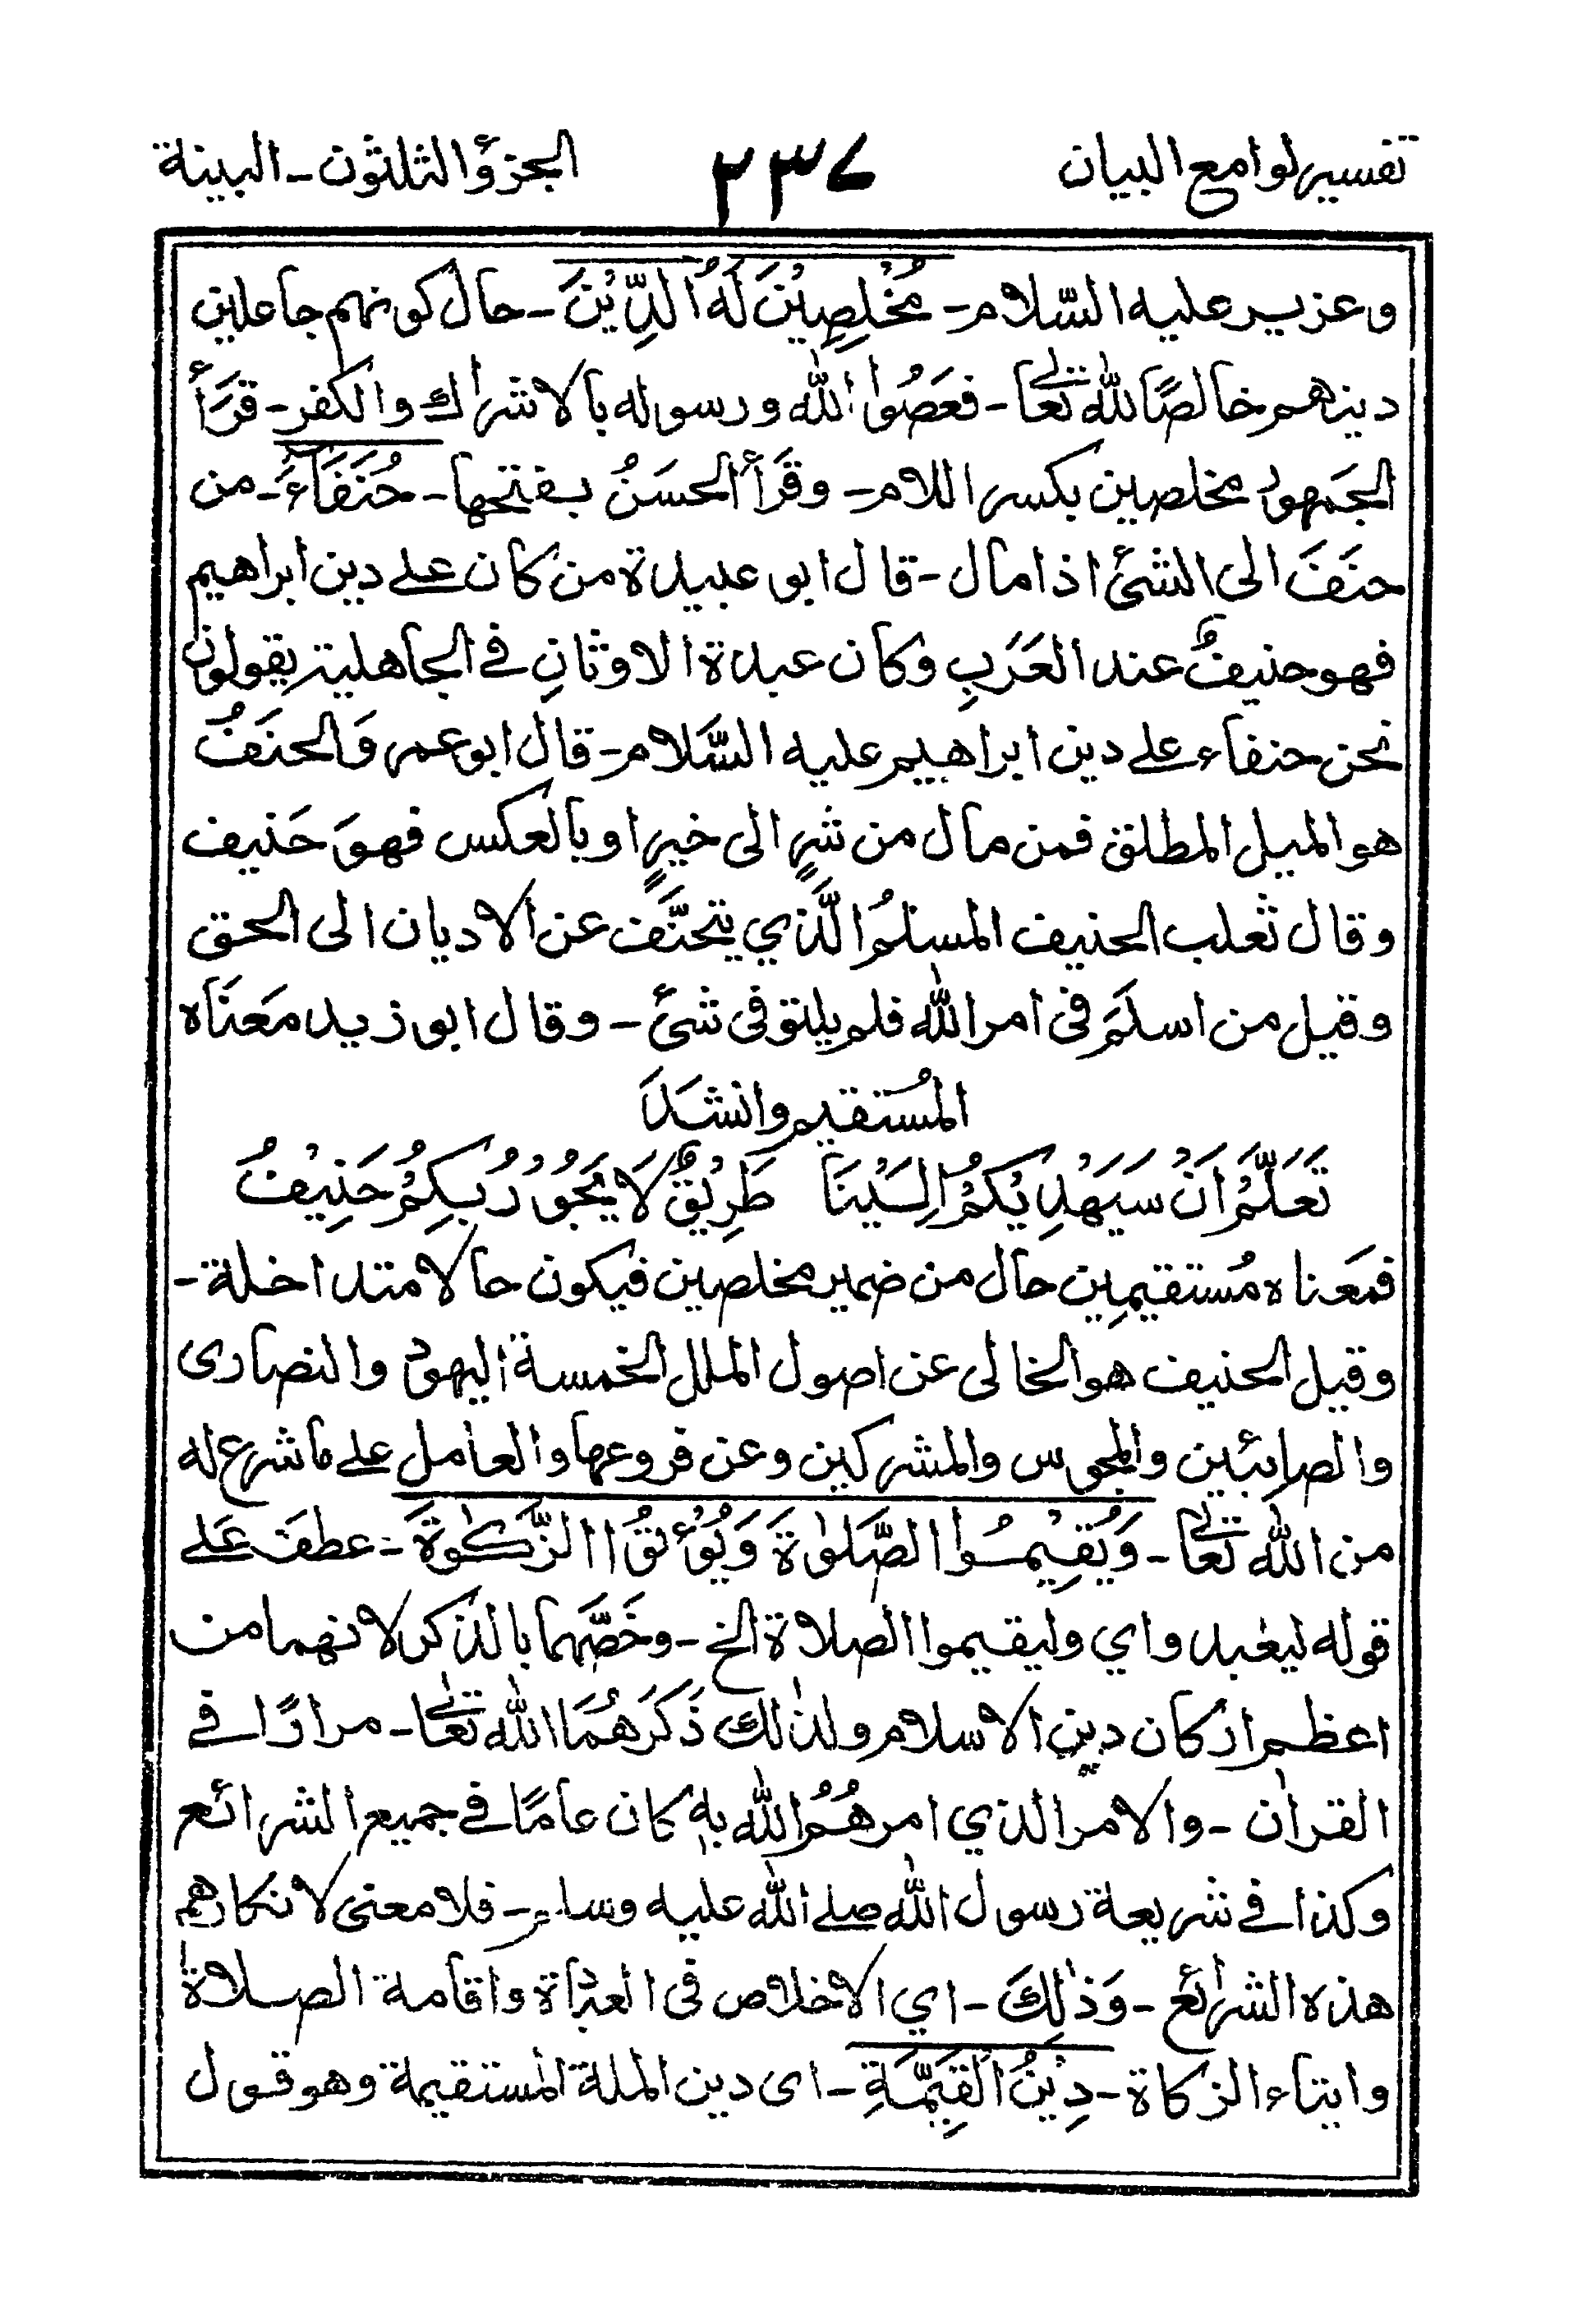 تفسير لوامع البيان ٢٣٧ الجزؤ الثلثون - البينة
وعزير عليه السّلام - مُخْلِصِيْنَ لَهُ الدِّيْنَ - حال كونهم جاعلين
دينهم خالصًا لله تعالىٰ - فعَصُوا الله ورسوله بالاشراك والكفر - قرَأَ
الجمهور مخلصين بكسر اللام - وقَرأ الحسَنُ بفتحها - حُنَفَاءَ - من
حنَفَ الى الشئ اذا مال - قال ابو عبيدة من كان على دين ابراهيم
فهو حنيفٌ عند العَرَبِ وكان عبدة الاوثانِ في الجاهلية يقولون
نحن حنفاء على دين ابراهيم عليه السَّلام - قال ابو عمر وَالحنَفُ
هو الميل المطلق فمن مال من شرٍ الى خيرٍ او بالعكس فهوَ حَنيف
وقال ثعلب الحنيف المسلمُ الَّذي يتحنَّف عن الاديان الى الحق
وقيل من اسلَمَ فى امر الله فلم يلتو فى شئ - وقال ابو زيد معَنَاه
المُستقيم وانشدَ
تَعَلَّمْ اَنْ سَيَهْدِيْكُمْ اِلَيْنَا طَرِيْقٌ لَا يَجُوْرُ بِكُمْ حَنِيْفُ
فمَعناه مُستقيمِين حال من ضمير مخلصين فيكون حالا متداخلة -
وقيل الحنيف هو الخالى عن اصول الملل الخمسة اليهود والنصارى
والصابئين والمجوس والمشركين وعن فروعها والعامل على ما شرع له
من الله تعالىٰ - وَيُقِيْمُوا الصَّلٰوةَ وَيُؤْتُوا الزَّكٰوةَ - عطفَ عَلى
قوله ليعبدوا اي وليقيموا الصلاة الخ - وخَصَّهما بالذكر لانهما من
اعظم اركان دين الاسلام ولذٰلك ذَكَرَهُمَا الله تعالىٰ - مرارًا في
القراٰن - والامر الذي امرهُمُ الله بهٖ كان عامًا في جميع الشرائع
وكذا في شريعة رسول الله صلى الله عليه وسلم - فلا معنى لانكارهم
هذه الشرائع - وَذٰلِكَ - اي الاخلاص فى العبادة واقامة الصلاة
وايتاء الزكاة - دِيْنُ الْقَيِّمَةِ - اى دين الملة المستقيمة وهو قول